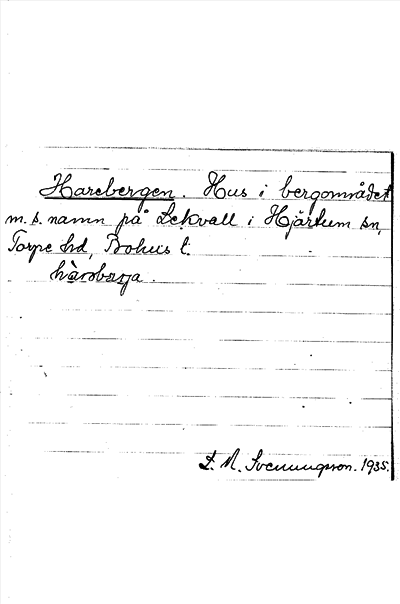 Harebergen. Hus i bergområdet
m. s. namn på Lekvall i Hjärtum sn,
Torpe hd, Bohus l.
hàrəbærja.
L. M. Svenungsson. 1935.